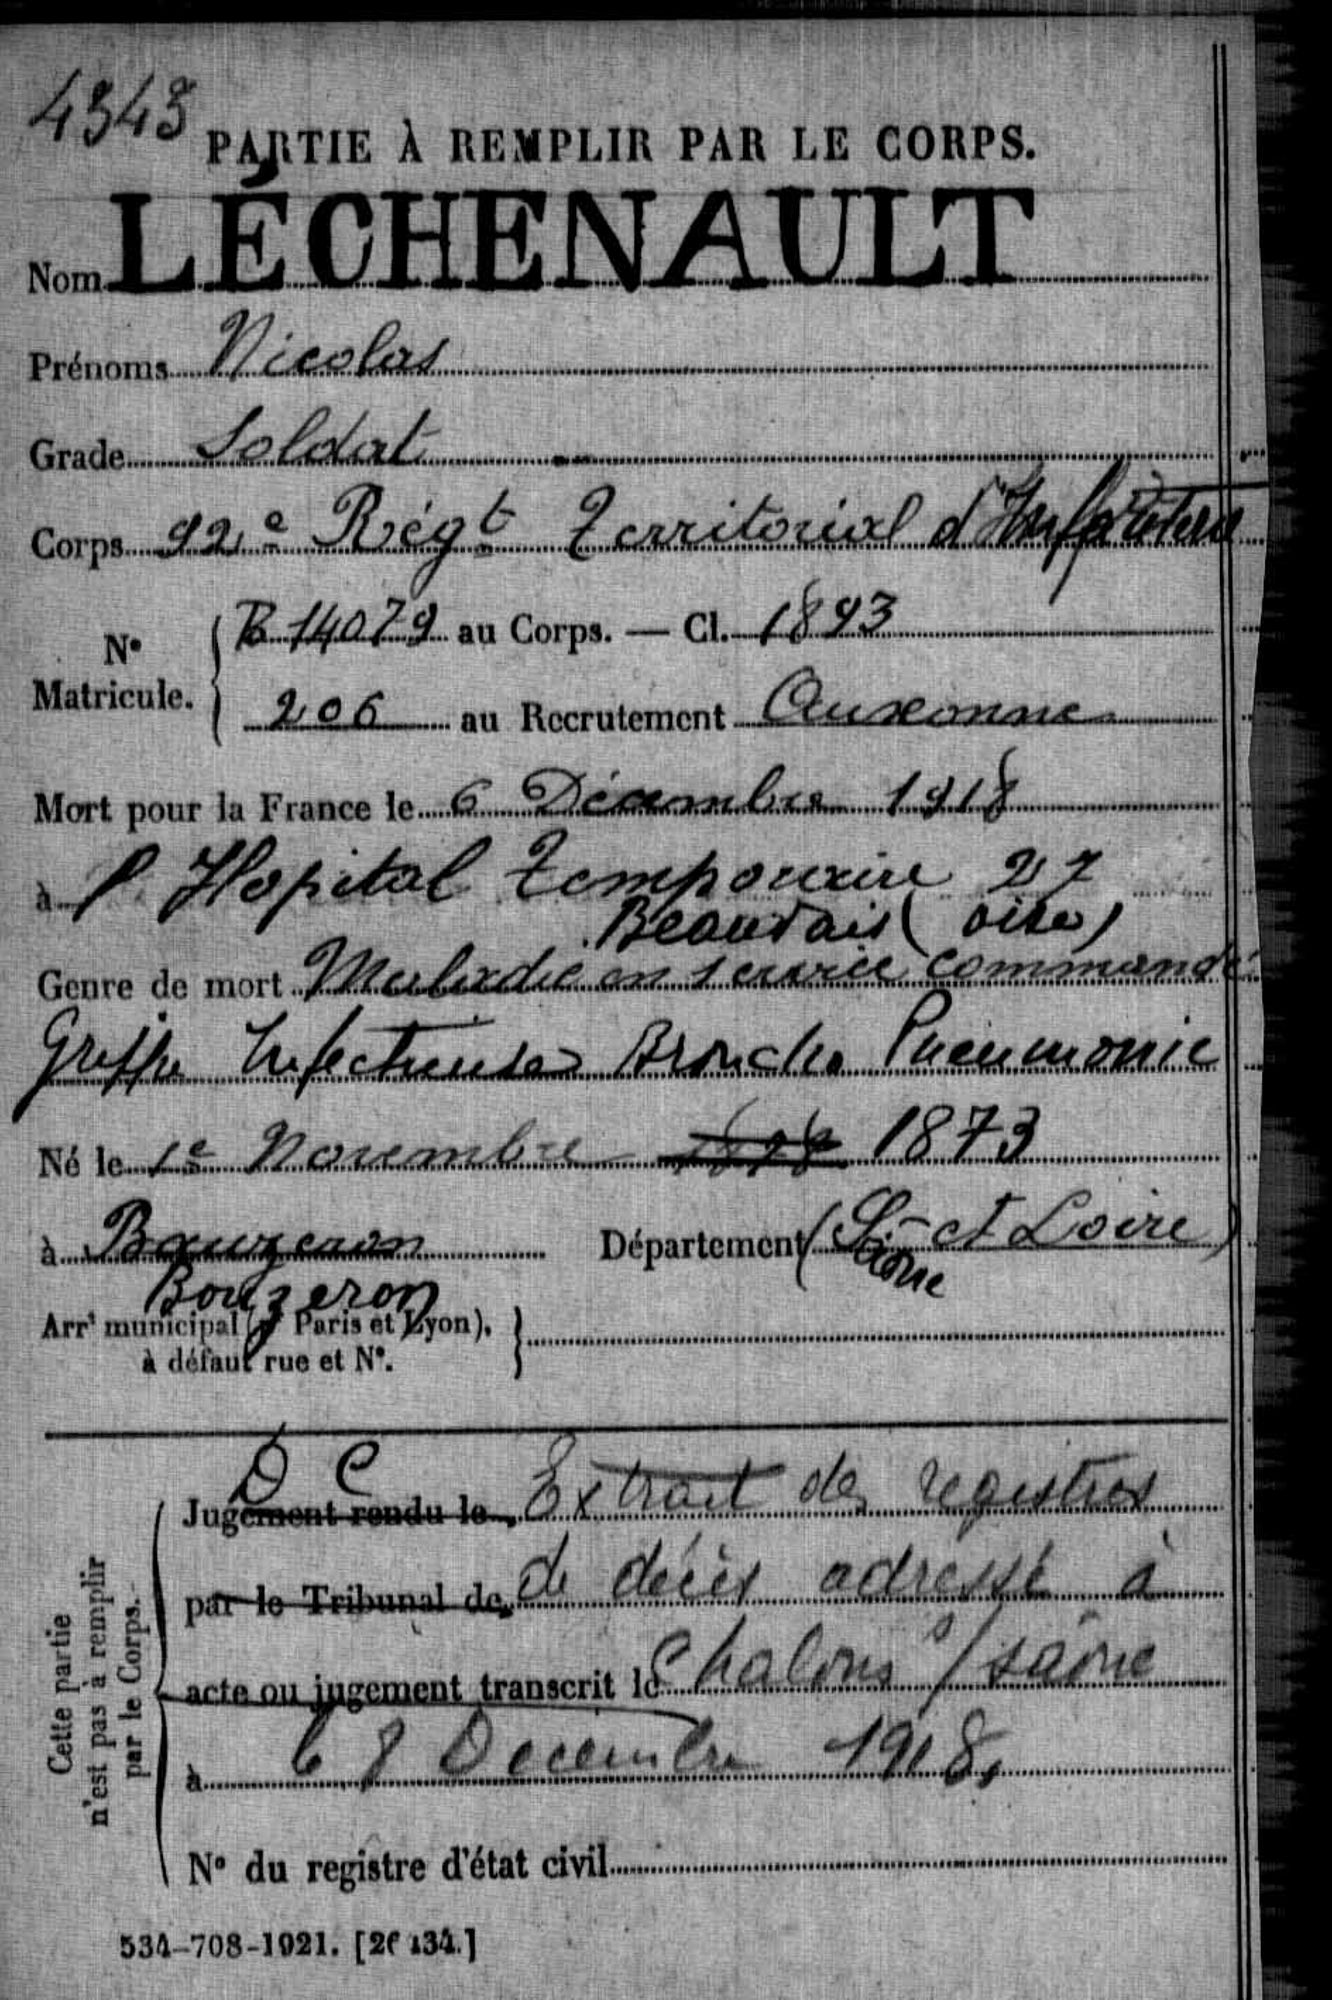 4343
PARTIE À REMPLIR PAR LE CORPS.
Nom LÉCHENAULT
Prénoms Nicolas
Grade Soldat
Corps 92e Régt Territorial d'Infanterie
N° Matricule. B 14079 au Corps. — Cl. 1893
206 au Recrutement Auxonne
Mort pour la France le 6 Décembre 1918
à l'Hopital Temporaire 27
Beauvais (Oise)
Genre de mort Maladie en service commandé
Grippe Infectieuse Broncho Pneumonie
Né le 1e Novembre 1878 1873
à Bouzeron Département (S.-et Loire)
Saône
Bouzeron
Arrt municipal (pr Paris et Lyon),
à défaut rue et N°.
D C
Jugement rendu le Extrait des registres
par le Tribunal de de décès adressé à
acte ou jugement transcrit le Chalons s/ Saône
à le 8 Decembre 1918.
N° du registre d'état civil
Cette partie
n'est pas à remplir
par le Corps.
534-708-1921. [26134.]